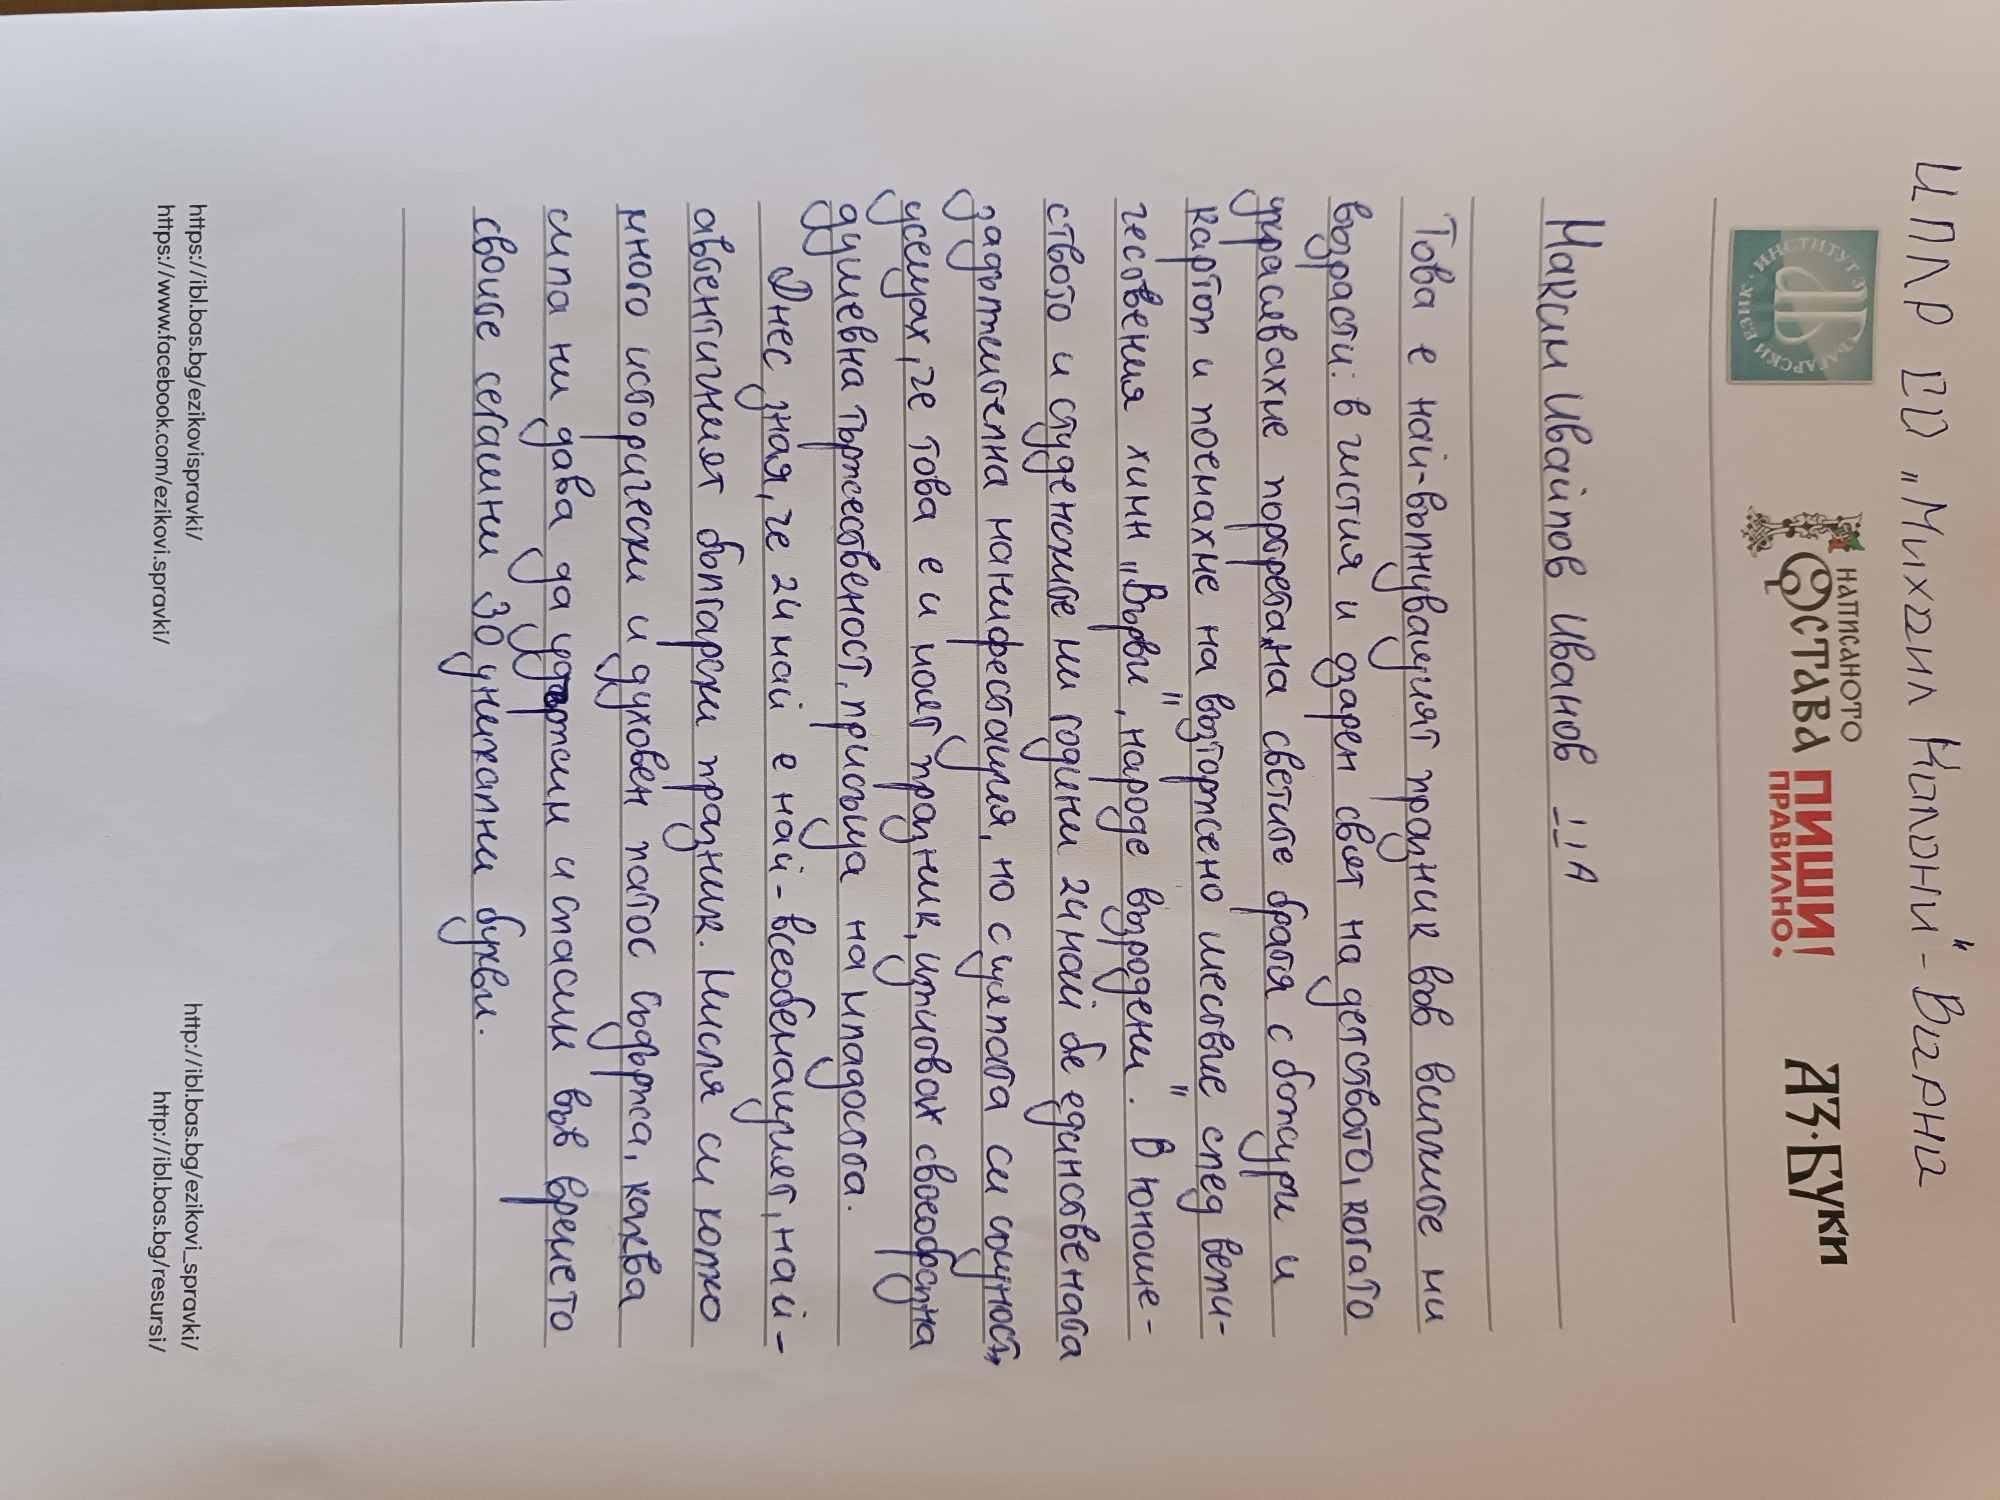 ЦПЛР ОД „Михаил Колони" - Варна
ИНСТИТУТ ЗА БЪЛГАРСКИ ЕЗИК
НАПИСАНОТО
ОСТАВА
ПИШИ
ПРАВИЛНО!
АЗ·БУКИ
Максим Ивайлов Иванов IIA
Това е най-вълнуващият празник във всичките ни
възрасти: в чистия и озарен свят на детството, когато
украсявахме портрета на светите братя с божури и
картоп и поемахме на възторжено шествие след вели-
чествения химн „Върви, народе възродени". В юноше-
ството и студенските ни години 24 май бе единствената
задължителна манифестация, но с цялата си същност
усещах, че това е и моят празник, изживах своеобразна
душевна тържественост, присъща на младостта.
Днес зная, че 24 май е най-всеобемащият, най-
автентичният български празник. Мисля си колко
много исторически и духовен патос съдържа, каква
сила ни дава да удържим и спасим във времето
своите сегашни 30 уникални букви.
https://ibl.bas.bg/ezikovispravki/
https://www.facebook.com/ezikovi.spravki/
http://ibl.bas.bg/ezikovi_spravki/
http://ibl.bas.bg/resursi/